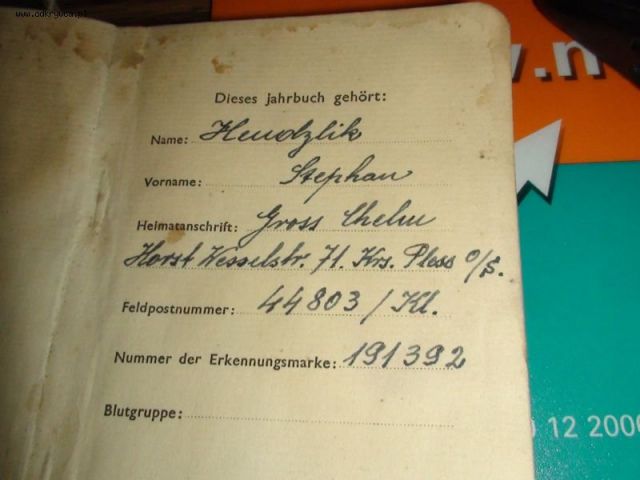 www.odkrywca.pl
w.n
Dieses Jahrbuch gehört:
Name: Hendzlik
Vorname: Stephan
Heimatanschrift: Gross Chelm
Horst Wesselstr. 71. Krs. Pless O/S.
Feldpostnummer: 44803 / Kl.
Nummer der Erkennungsmarke: 191392
Blutgruppe:
12 2000